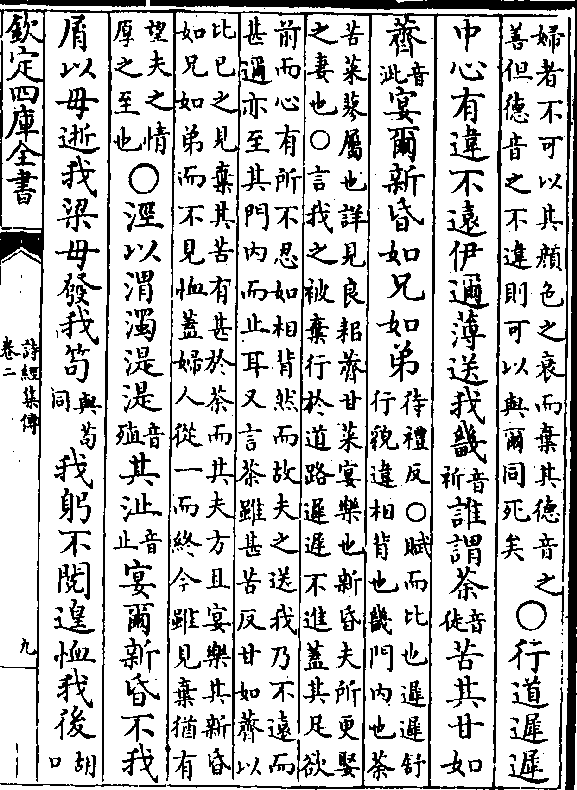 婦者不可以其顏色之衰而棄其德音之
善但德音之不違則可以與爾同死矣
○行道遲遲
中心有違不遠伊邇薄送我畿音祈誰謂荼音徒苦其甘如
薺音泚宴爾新昏如兄如弟待禮反○賦而比也遲遲舒
行貌違相背也畿門内也荼
苦菜蓼屬也詳見良耜薺甘菜宴樂也新昏夫所更娶
之妻也○言我之被棄行於道路遲遲不進蓋其足欲
前而心有所不忍如相背然而故夫之送我乃不遠而
甚邇亦至其門内而止耳又言荼雖甚苦反甘如薺以
比已之見棄其苦有甚於荼而其夫方且宴樂其新昏
如兄如弟而不見恤蓋婦人從一而終今雖見棄猶有
望夫之情
厚之至也
○涇以渭濁湜湜音殖其沚音止宴爾新昏不我
屑以毋逝我梁毋發我笱與苟同我躬不閱遑恤我後胡口
欽定四庫全書
詩經集傳
卷二
九